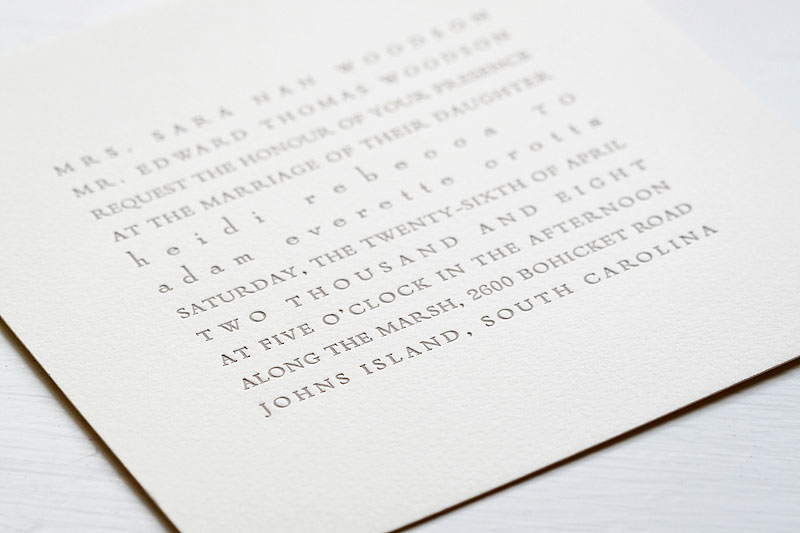 MRS. SARA NAN WOODSON
MR. EDWARD THOMAS WOODSON
REQUEST THE HONOUR OF YOUR PRESENCE
AT THE MARRIAGE OF THEIR DAUGHTER
heidi rebecca TO
adam everette crotts
SATURDAY, THE TWENTY-SIXTH OF APRIL
TWO THOUSAND AND EIGHT
AT FIVE O'CLOCK IN THE AFTERNOON
ALONG THE MARSH, 2600 BOHICKET ROAD
JOHNS ISLAND, SOUTH CAROLINA